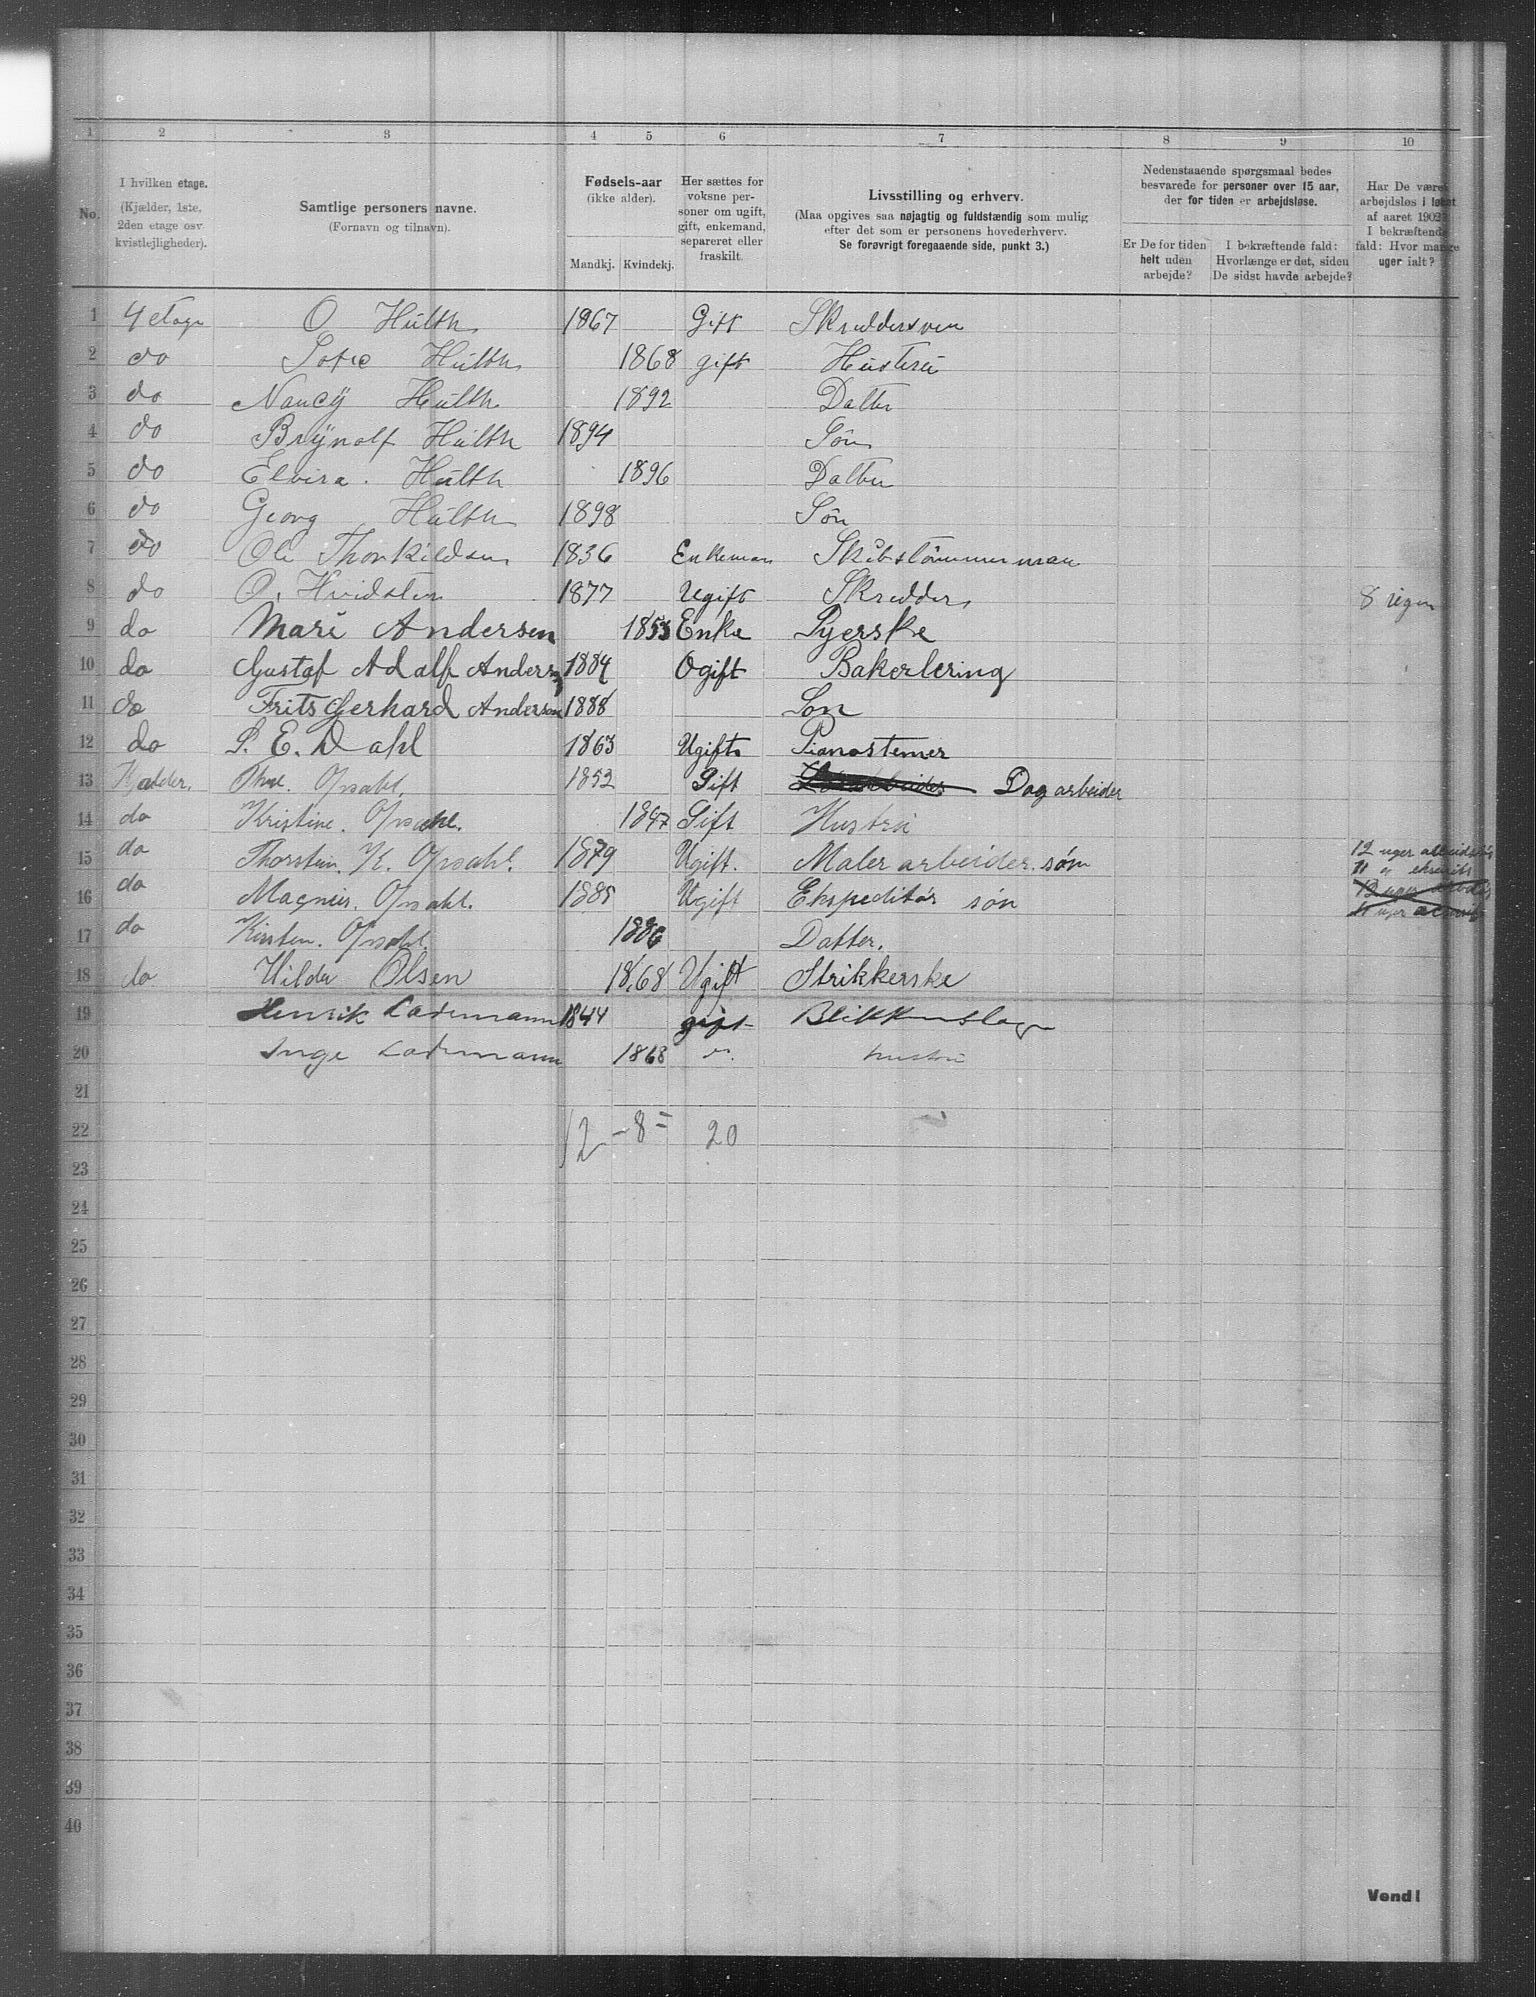 1 2 3 4 5 6 7 8 9 10
No.
I hvilken etage. (Kjælder, 1ste, 2den etage osv. kvistlejligheder).
Samtlige personers navne. (Fornavn og tilnavn).
Fødsels-aar (ikke alder).
Mandkj. Kvindekj.
Her sættes for voksne personer om ugift, gift, enkemand, separeret eller fraskilt.
Livsstilling og erhverv.
(Maa opgives saa nøjagtig og fuldstændig som mulig efter det som er personens hovederhverv.
Se forøvrigt foregaaende side, punkt 3.)
Nedenstaaende spørgsmaal bedes besvarede for personer over 15 aar, der for tiden er arbejdsløse.
Er De for tiden helt uden arbejde?
I bekræftende fald: Hvorlænge er det, siden De sidst havde arbejde?
Har De været arbejdsløs i løbet af aaret 1902? I bekræftende fald: Hvor mange uger ialt?
1 4 etage O Hulth 1867 Gift Skreddersven
2 do Sofie Hulth 1868 gift Hustru
3 do Nancy Hulth 1892 Datter
4 do Brynolf Hulth 1894 Søn
5 do Elvira. Hulth 1896 Datter
6 do Georg Hulth 1898 Søn
7 do Ole Thorkildsen 1836 Enkeman Skibstømmerman
8 do O. Hvidsten 1877 Ugift Skredder 8 uger
9 do Mari Andersen 1853 Enke Syerske
10 do Gustaf Adolf Anderson 1884 Ogift Bakerlering
11 do Frits Gerhard Anderson 1888 Son
12 do S. E. Dahl 1863 Ugift Pianostemer
13 Kjælder. Opsahl. 1852 Gift Dagarbeider
14 do Kristine. Opsahl. Gift Hustru
15 do Thorstein. K. Opsahl. 1879 Ugift. Maler arbeider. søn 12 uger arbeidsløs
16 do Magnus. Opsahl. 1885 Ugift Ekspeditør søn
17 do Kirsten. Opsahl. 1886 Datter.
18 do Hilda Olsen 1868 Ugift Strikkerske
19 Henrik Lademann 1844 gift Blikkenslager
20 Inge Lademann 1868 hustru
21
22 12 - 8 = 20
23
24
25
26
27
28
29
30
31
32
33
34
35
36
37
38
39
40
Vend!